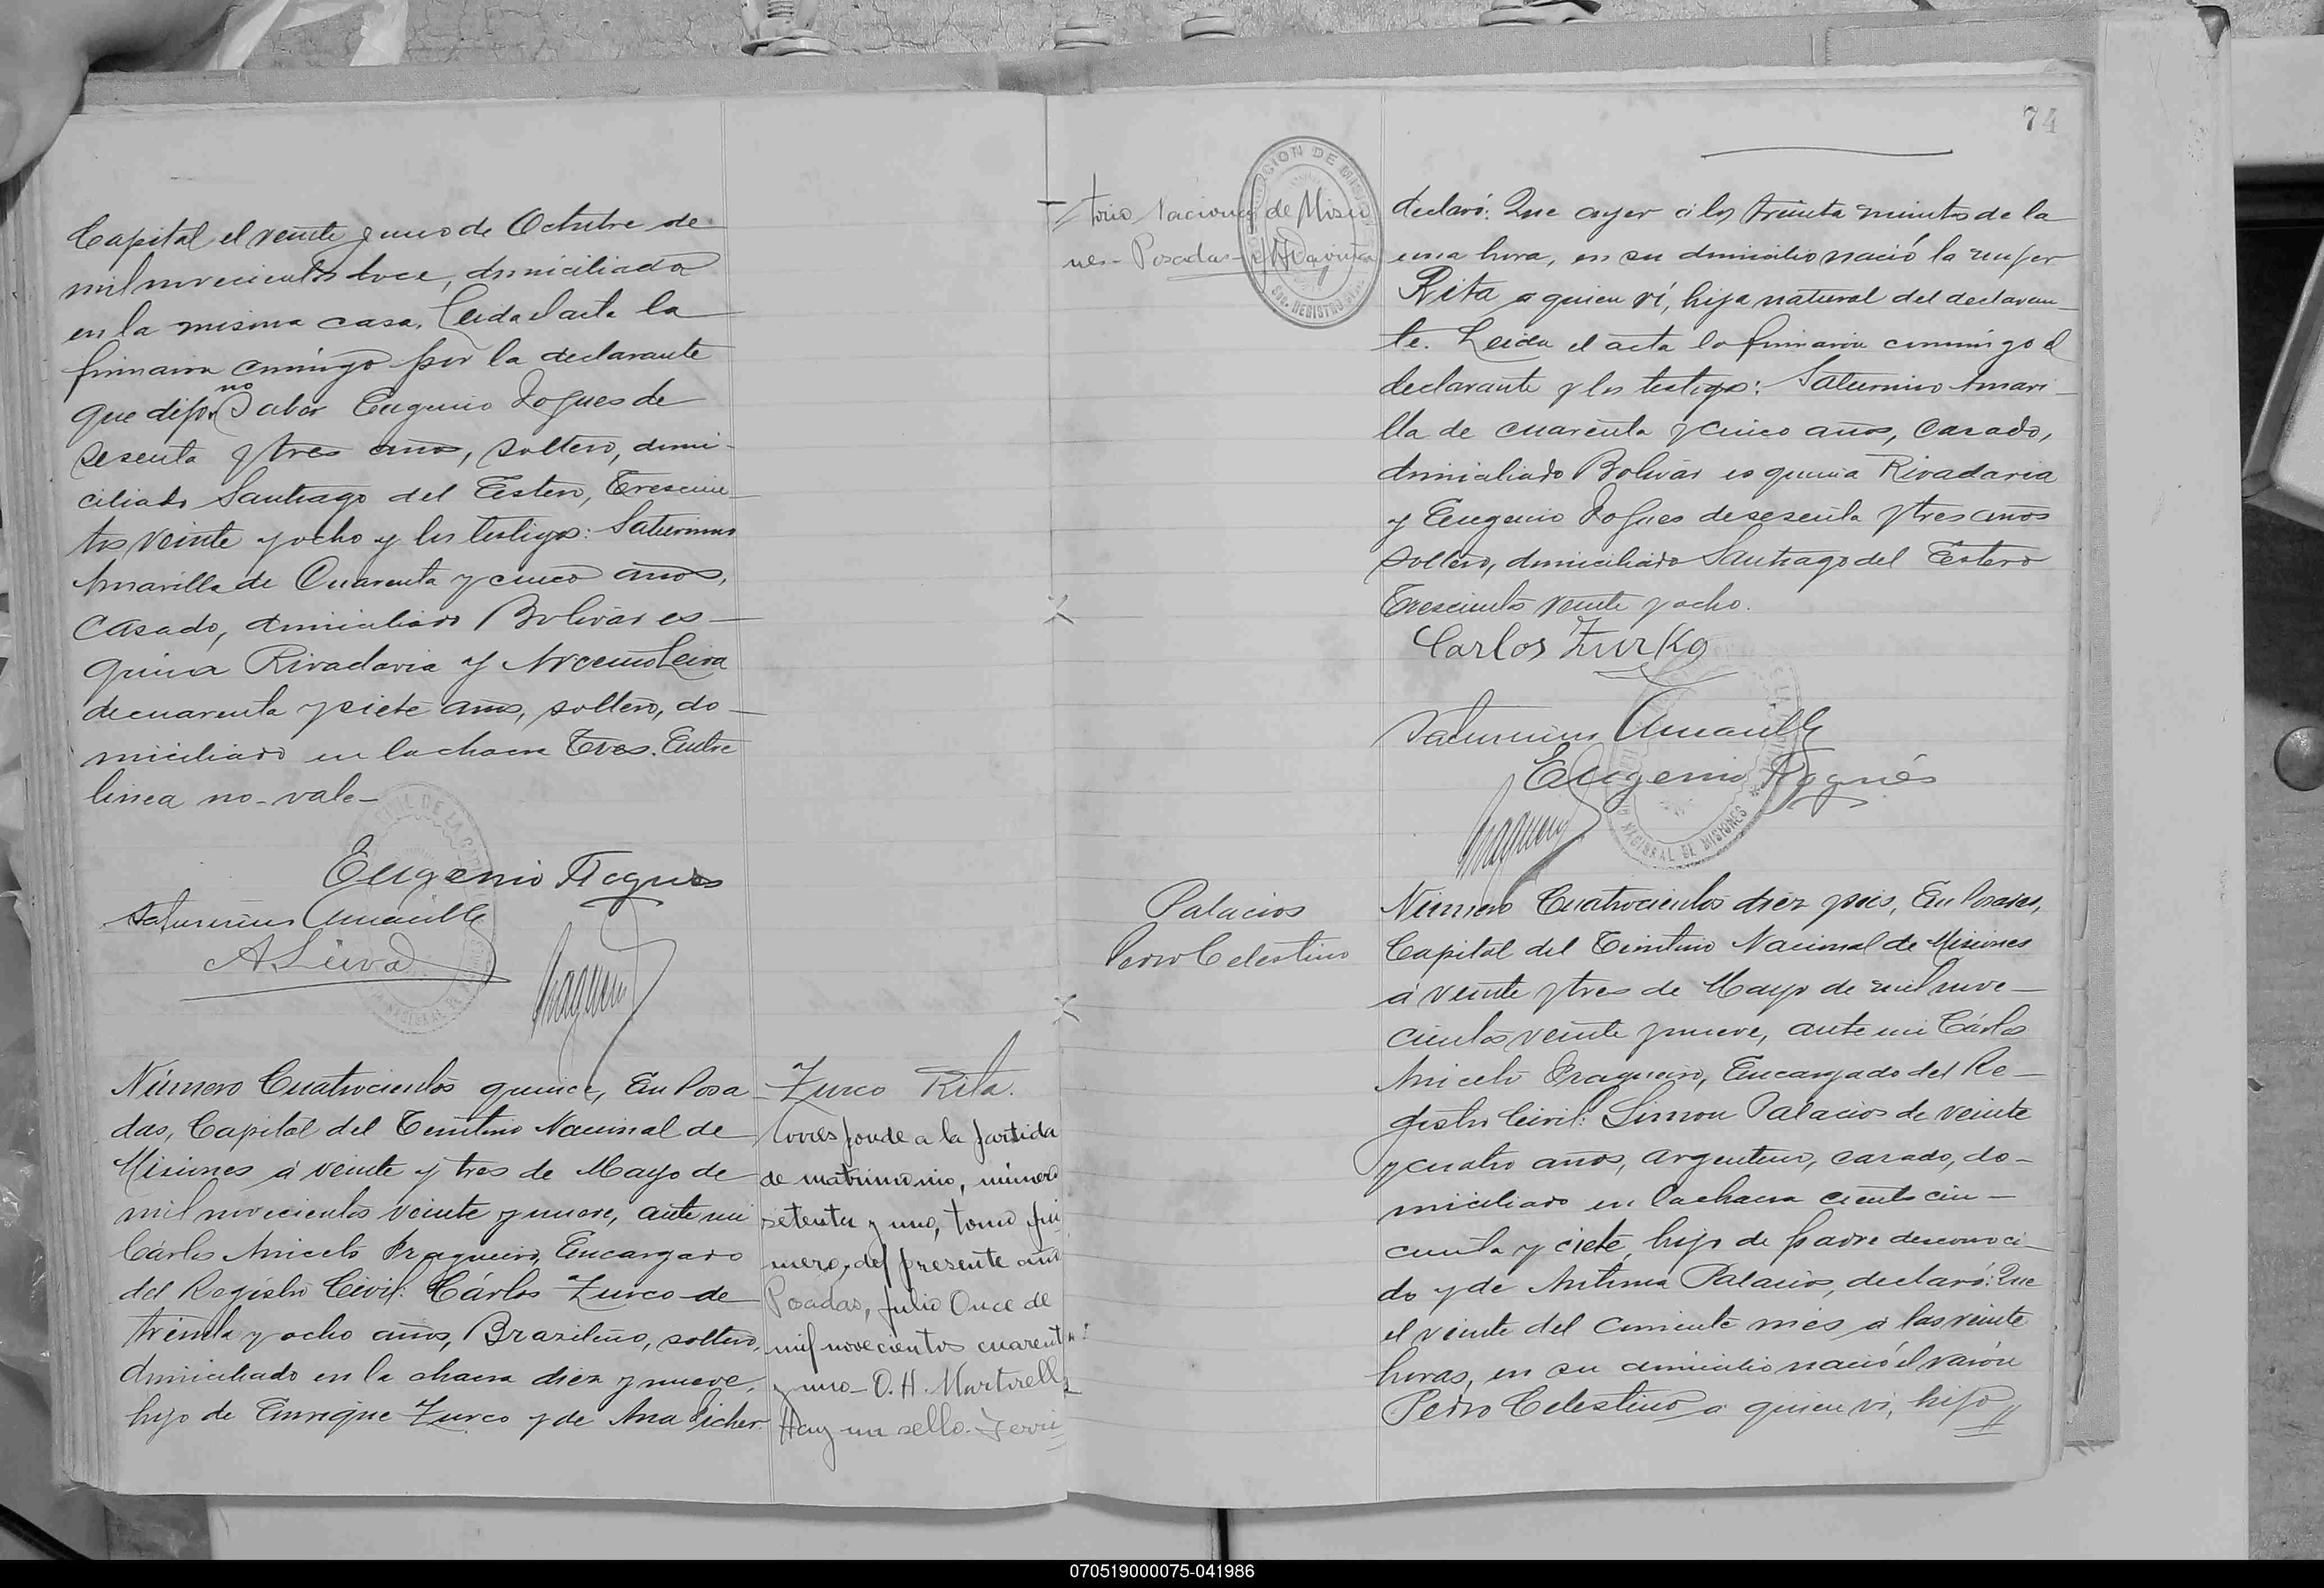 Capital el veinte y uno de Octubre de
mil novecientos doce, domiciliada
en la misma casa. Leida el acta la
firmaron conmigo por la declarante
que dijo no saber Eugenio Rogues de
sesenta y tres años, soltero, domi-
ciliado Santiago del Estero, Trescien-
tos veinte y ocho y los testigos: Saturnino
Amarilla de Cuarenta y cinco años,
Casado, domiciliado Bolivar es-
quina Rivadavia y Arcenio Leiva
de cuarenta y siete años, soltero, do-
miciliado en la chacra Tres. Entre
linea no-vale-
Eugenio Rogues
Saturnino Amarilla
A Leiva
Número Cuatrocientos quince, En Posa
das, Capital del Territorio Nacional de
Misiones á veinte y tres de Mayo de
mil novecientos veinte y nueve, ante mi
Cárlos Aniceto Fragueiro, Encargado
del Registro Civil: Cárlos Zurco de
treinta y ocho años, Brazileño, soltero,
domiciliado en la chacra diez y nueve,
hijo de Enrique Zurco y de Ana
Zurco Rita.
Corresponde a la partida
de matrimonio, número
setenta y uno, tomo pri
mero, del presente año
Posadas, Julio Once de
mil novecientos cuarenta
y uno- O. H. Martorell
Hay un sello. Terri-
74
torio Nacional de Misio
nes- Posadas-
declaró: Que ayer á los treinta minutos de la
una hora, en su domicilio nació la mujer
Rita a quien ví, hija natural del declaran-
te. Leida el acta la firmaron conmigo el
declarante y los testigos: Saturnino Amari-
lla de cuarenta y cinco años, Casado,
domiciliado Bolivar esquina Rivadavia
y Eugenio Rogues de sesenta y tres años
soltero, domiciliado Santiago del Estero
Trescientos veinte y ocho.
Carlos Zurko
Saturnino Amarilla
Eugenio Rogués
Palacios
Pedro Celestino
Número Cuatrocientos diez y seis, En Posadas,
Capital del Territorio Nacional de Misiones
á veinte y tres de Mayo de mil nove-
cientos veinte y nueve, ante mi Cárlos
Aniceto Fragueiro, Encargado del Re-
gistro Civil: Simon Palacios de veinte
y cuatro años, argentino, casado, do-
miciliado en la chacra ciento cin-
cuenta y ciete, hijo de padre desconoci-
do y de Antonia Palacios, declaró: Que
el veinte del corriente mes á las veinte
horas, en su domicilio nació el varón
Pedro Celestino a quien vi, hijo
070519000075-041986